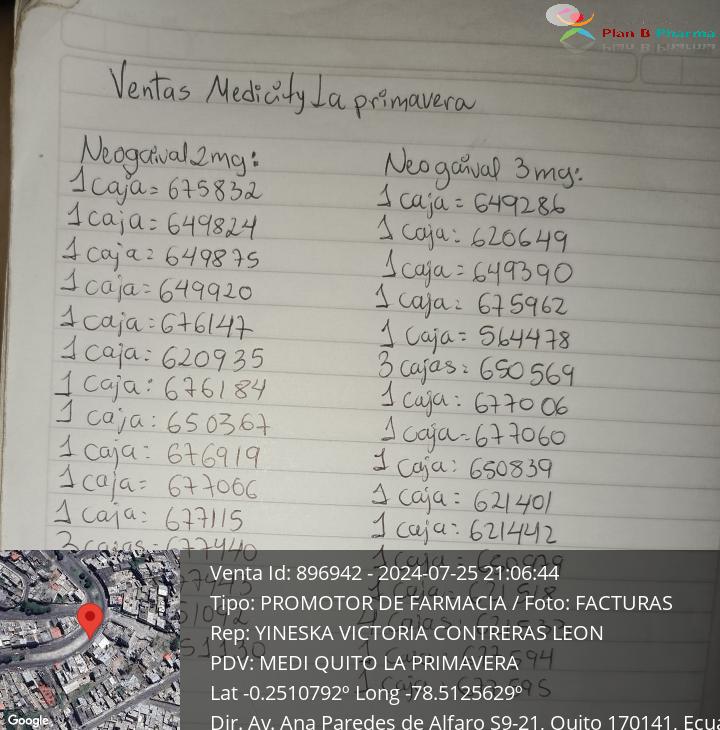 Plan B Pharma
Ventas Medicity La primavera
Neogaival 2mg:
1 caja = 675832
1 caja = 649824
1 caja = 649875
1 caja = 649920
1 caja = 676147
1 caja: 620935
1 caja: 676184
1 caja: 650367
1 caja: 676919
1 caja= 677066
1 caja: 677115
3 cajas = 677440
Neogaival 3mg:
1 caja = 649286
1 caja: 620649
1 caja = 649390
1 caja: 675962
1 caja= 564478
3 cajas: 650569
1 caja: 677006
1 caja = 677060
1 caja: 650839
1 caja: 621401
1 caja: 621442
Venta Id: 896942 - 2024-07-25 21:06:44
Tipo: PROMOTOR DE FARMACIA / Foto: FACTURAS
Rep: YINESKA VICTORIA CONTRERAS LEON
PDV: MEDI QUITO LA PRIMAVERA
Lat -0.2510792º Long -78.5125629º
Dir. Av. Ana Paredes de Alfaro S9-21, Quito 170141, Ecua
Google